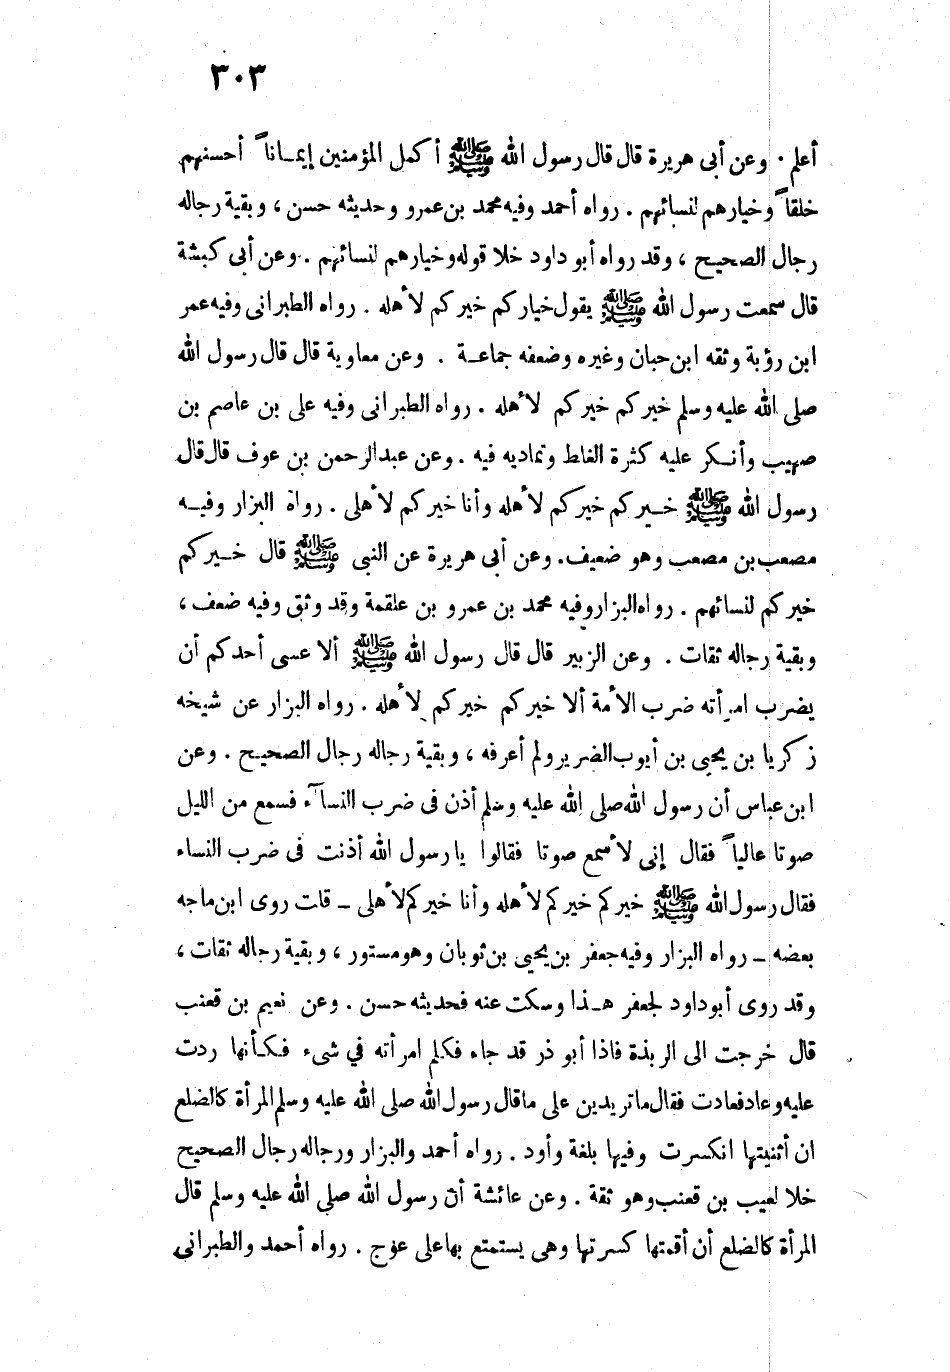 ٣٠٣
أعلم. وعن أبى هريرة قال قال رسول الله ﷺ أكمل المؤمنين إيمـاناً أحسنهم
خلقاً وخيارهم لنسائهم . رواه أحمد وفيه محمد بن عمرو وحديثه حسن ، وبقية رجاله
رجال الصحيح ، وقد رواه أبو داود خلا قوله وخيارهم لنسائهم . وعن أبى كبشة
قال سمعت رسول الله ﷺ يقول خياركم خيركم لأهله . رواه الطبرانى وفيه عمر
ابن رؤبة وثقه ابن حبان وغيره وضعفه جماعـة . وعن معاوية قال قال رسول الله
صلى الله عليه وسلم خيركم خيركم لأهله . رواه الطبرانى وفيه على بن عاصم بن
صهيب وأنـكر عليه كثرة الغلط وتماديه فيه . وعن عبدالرحمن بن عوف قال قال
رسول الله ﷺ خـيركم خيركم لأهله وأنا خيركم لأهلى . رواه البزار وفيـه
مصعب بن مصعب وهو ضعيف. وعن أبى هريرة عن النبى ﷺ قال خـيركم
خيركم لنسائهم . رواه البزار وفيه محمد بن عمرو بن علقمة وقد وثق وفيه ضعف ،
وبقية رجاله ثقات . وعن الزبير قال قال رسول الله ﷺ ألا عسى أحدكم أن
يضرب امرأته ضرب الأمة ألا خيركم خيركم لأهله . رواه البزار عن شيخه
زكريا بن يحيى بن أيوب الضرير ولم أعرفه ، وبقية رجاله رجال الصحيح . وعن
ابن عباس أن رسول الله صلى الله عليه وسلم أذن فى ضرب النسآء فسمع من الليل
صوتا عالياً فقال إنى لأسمع صوتا فقالوا يا رسول الله أذنت فى ضرب النساء
فقال رسول الله ﷺ خيركم خيركم لأهله وأنا خيركم لأهلى ـ قلت روى ابن ماجه
بعضه ـ رواه البزار وفيه جعفر بن يحيى بن ثوبان وهو مستور ، وبقية رجاله ثقات ،
وقد روى أبو داود لجعفر هـذا وسكت عنه فحديثه حسن . وعن نعيم بن قعنب
قال خرجت الى الربذة فاذا أبو ذر قد جاء فكلم امرأته في شىء فكـأنها ردت
عليه وعاد فعادت فقال ما تريدين على ما قال رسول الله صلى الله عليه وسلم المرأة كالضلع
ان أثنيتها انكسرت وفيها بلغة وأود . رواه أحمد والبزار ورجاله رجال الصحيح
خلا لعيب بن قعنب وهو ثقة . وعن عائشة أن رسول الله صلى الله عليه وسلم قال
المرأة كالضلع أن أقمتها كسرتها وهى يستمتع بها على عوج . رواه أحمد والطبرانى